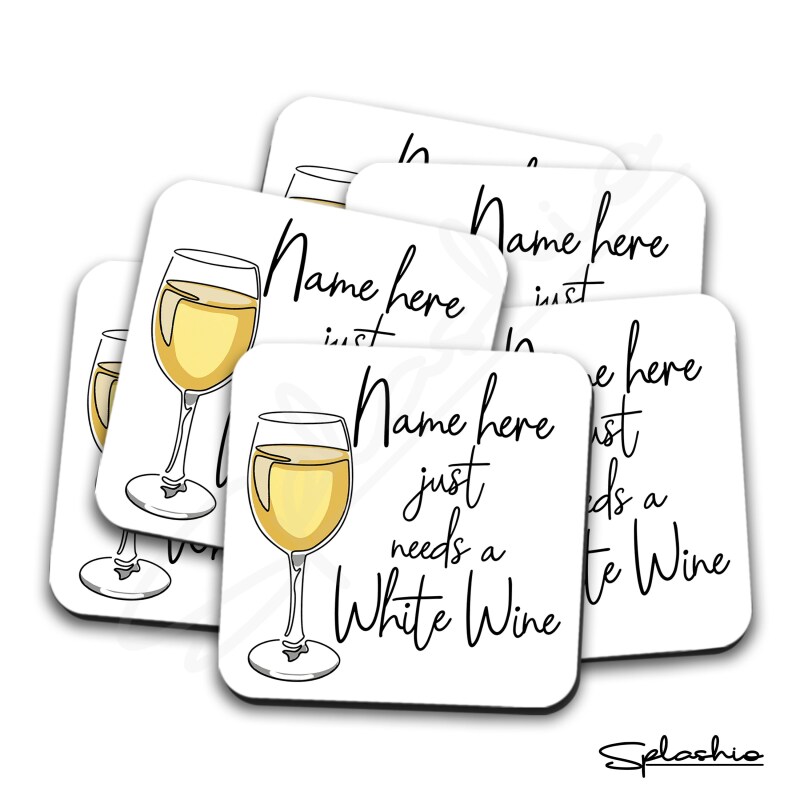 Name here
Name here
just
Name here
just
Name here
just
needs a
White Wine
Name here
just
needs a
White Wine
Splashio